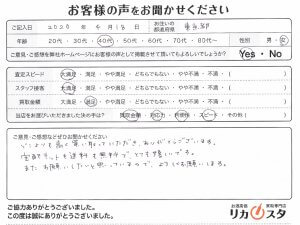 お客様の声をお聞かせください
ご記入日 2020年6月18日 お住いの都道府県 東京都
年齢 20代・30代・40代・50代・60代・70代・80代〜 性別 男・女
ご意見・ご感想を弊社ホームページにお客様の声として掲載させて頂いてもよろしいでしょうか? Yes・No
査定スピード 大満足・満足・やや満足・どちらでもない・やや不満・不満・大不満
スタッフ接客 大満足・満足・やや満足・どちらでもない・やや不満・不満・大不満
買取金額 大満足・満足・やや満足・どちらでもない・やや不満・不満・大不満
当店をお選びいただきました決め手は? 買取金額・お応力・利便性・スピード・その他
ご意見・ご感想などをお聞かせください
高く買い取っていただき、ありがとうございます。
宅配キットも送料も無料でとても嬉しいです。
また、お願いしたいと思っていますので、よろしくお願いします。
ご協力ありがとうございました。
この度は誠にありがとうございました。
お酒高価買取専門店
リカスタ